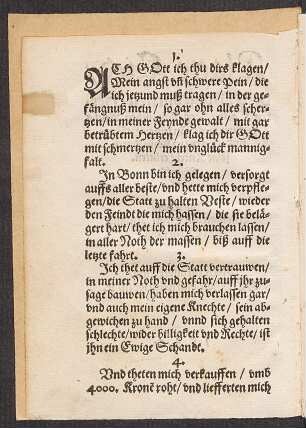 1.
ACH GOtt ich thu dirs klagen/
Mein angst vñ schwere Pein/ die
ich jetzund muß tragen/ in der ge-
fängnuß mein/ so gar ohn alles scher-
tzen/ in meiner Feynde gewalt/ mit gar
betrübtem Hertzen/ klag ich dir GOtt
mit schmertzen/ mein vnglück mannig-
falt. 2.
In Bonn bin ich gelegen/ versorgt
auffs aller beste/ vnd hette mich verpfle-
gen/ die Statt zu halten Veste/ wieder
den Feindt die mich hassen/ die sie belä-
gert hart/ thet ich mich brauchen lassen/
in aller Noth der massen/ biß auff die
letzte fahrt. 3.
Ich thet auff die Statt vertrauwen/
in meiner Noth vnd gefahr/ auff jhr zu-
sage bauwen/ haben mich verlassen gar/
vnd auch mein eigene Knechte/ sein ab-
gewichen zu hand/ vnnd sich gehalten
schlechte/ wider billigkeit vnd Rechte/ ist
jhn ein Ewige Schandt.
4.
Vnd theten mich verkauffen/ vmb
4000. Kronẽ roht/ vnd liefferten mich